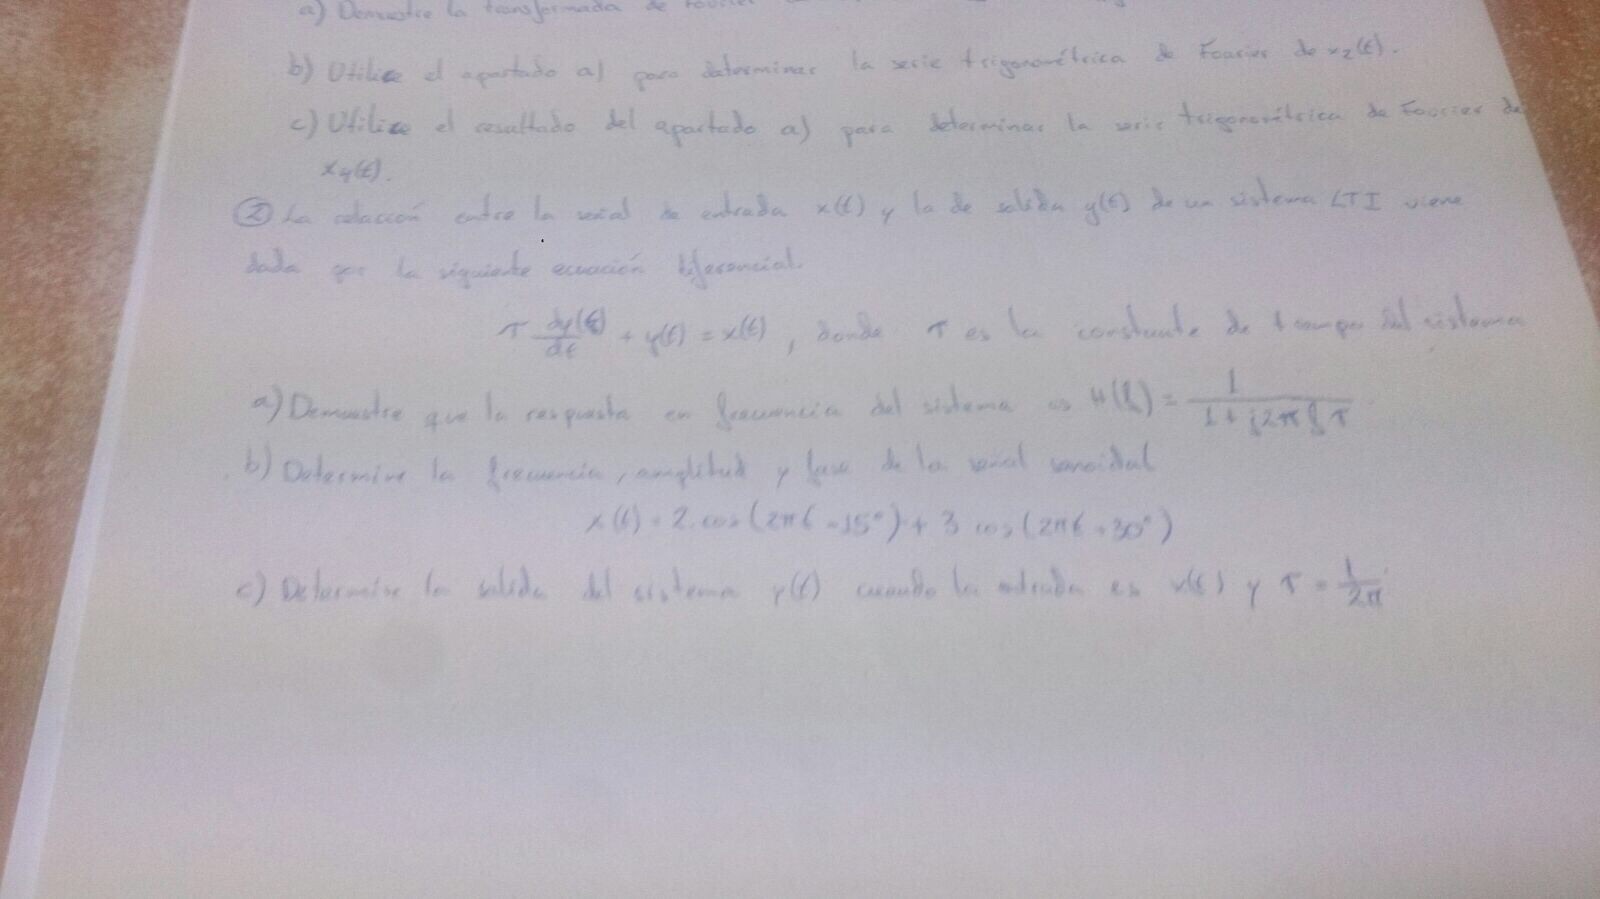 a) Demuestre la transformada de Fourier
b) Utilice el apartado a) para determinar la serie trigonométrica de Fourier de x₂(t).
c) Utilice el resultado del apartado a) para determinar la serie trigonométrica de Fourier de
x₄(t).
② La relación entre la señal de entrada x(t) y la de salida y(t) de un sistema LTI viene
dada por la siguiente ecuación diferencial.
τ dy(t)/dt + y(t) = x(t), donde τ es la constante de tiempo del sistema
a) Demuestre que la respuesta en frecuencia del sistema es H(f) = 1/(1 + j2πfτ)
b) Determine la frecuencia, amplitud y fase de la señal senoidal
x(t) = 2 cos(2πt - 15°) + 3 cos(2πt + 30°)
c) Determine la salida del sistema y(t) cuando la entrada es x(t) y τ = 1/2π